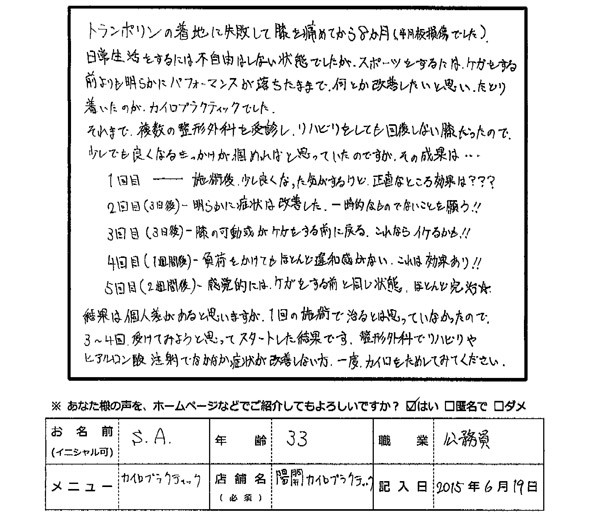 トランポリンの着地に失敗して膝を痛めてから8カ月(半月板損傷でした)。
日常生活をするには不自由はしない状態でしたが、スポーツをするには、ケガをする
前よりも明らかにパフォーマンスが落ちたままで、何とか改善したいと思い、たどり
着いたのが、カイロプラクティックでした。
それまで、複数の整形外科を受診し、リハビリをしても回復しない膝だったので、
少しでも良くなるきっかけが掴めればと思っていたのですが、その成果は…
1回目 ── 施術後、少し良くなった気がするけど、正直なところ効果は???
2回目(3日後)- 明らかに症状は改善した。一時的なものでないことを願う!!
3回目(3日後)- 膝の可動域がケガをする前に戻る。これならイケるかも!!
4回目(1週間後)- 負荷をかけてもほとんど違和感がない。これは効果あり!!
5回目(2週間後)- 感覚的には、ケガをする前と同じ状態。ほとんど完治☆
結果は個人差があると思いますが、1回の施術で治るとは思っていなかったので、
3〜4回、受けてみようと思ってスタートした結果です。整形外科でリハビリや
ヒアルロン酸注射でなかなか症状が改善しない方、一度、カイロをためしてみてください。
※ あなた様の声を、ホームページなどでご紹介してもよろしいですか? ☑はい □匿名で □ダメ
お名前(イニシャル可) S.A. 年齢 33 職業 公務員
メニュー カイロプラクティック 店舗名(必須) 陽開カイロプラクティック 記入日 2015年6月19日